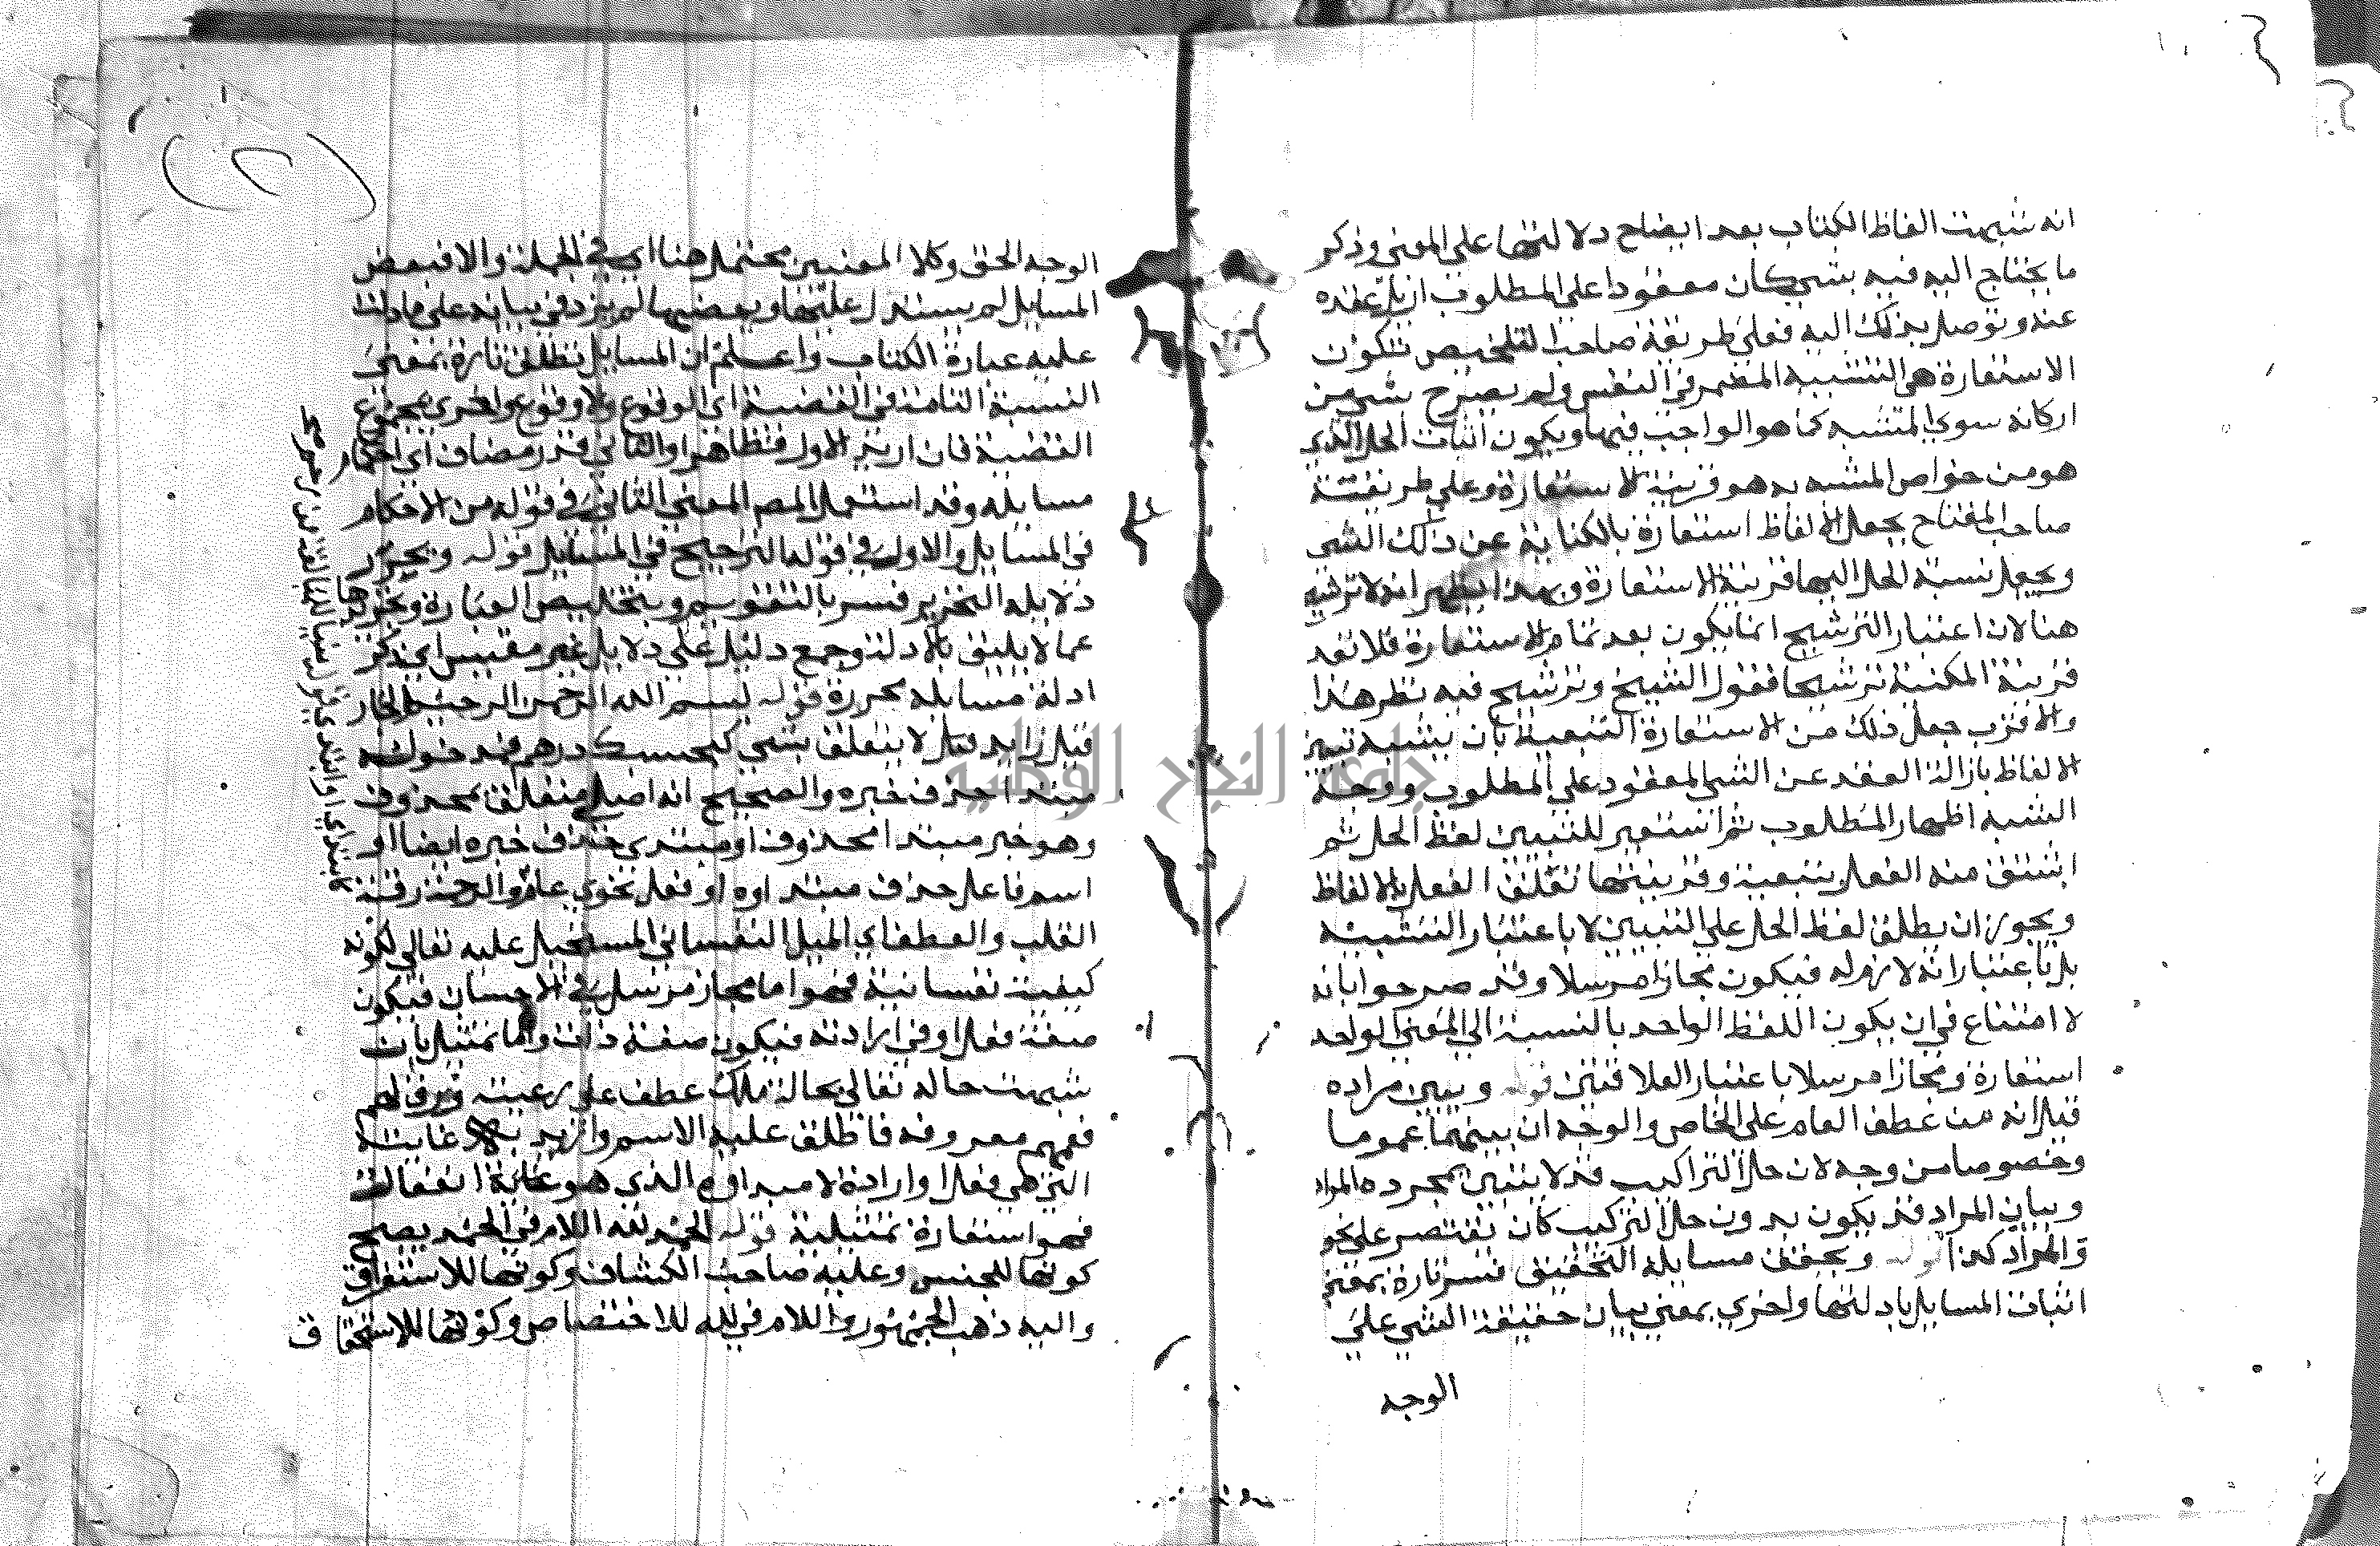 انه شبهت الفاظ الكتاب بعد ايضاح دلالتها على المعنى وذكر
ما يحتاج اليه فيه بشي كان معقودا على المطلوب ازيل عقده
عنه وتوصل بذلك اليه فعلى طريقة صاحب التلخيص تكون
الاستعارة هي التشبيه المضمر في النفس ولم يصرح بشي من
اركانه سوى المشبه كما هو الواجب فيها ويكون اثبات الحل الذي
هو من خواص المشبه به هو قرينة الاستعارة وعلى طريقة
صاحب المفتاح يجعل الالفاظ استعارة بالكناية عن ذلك الشي
ويجعل نسبة الحل اليها قرينة الاستعارة وبهذا يظهر انه لا ترشيح
هنا لان اعتبار الترشيح انما يكون بعد تمام الاستعارة فلا تعد
قرينة المكنية ترشيحا فقول الشيخ وترشيح فيه نظر هذا
والاقرب جعل ذلك من الاستعارة التبعية بان يشبه تبيين
الالفاظ بازالة العقد عن الشي المعقود على المطلوب ووجه
الشبه اظهار المطلوب ثم استعير للتبيين لفظ الحل ثم
اشتق منه الفعل تبعية وقرينتها تعلق الفعل بالالفاظ
ويجوز ان يطلق لفظ الحل على التبيين لا باعتبار التشبيه
بل باعتبار انه لازم له فيكون مجازا مرسلا وقد صرحوا بانه
لا امتناع في ان يكون اللفظ الواحد بالنسبة الى المعنى الواحد
استعارة ومجازا مرسلا باعتبار العلاقتين قوله ويبين مراده
قيل انه من عطف العام على الخاص والوجه ان بينهما عموما
وخصوصا من وجه لان حل التراكيب قد لا يتبين بمجرده المراد
وبيان المراد قد يكون بدون حل التركيب كان تقتصر على نحو
والمراد كذا قوله ويحقق مسايله التحقيق فسر تارة بمعنى
اثبات المسايل بادلتها واخرى بمعنى بيان حقيقة الشي على
الوجه
الوجه الحق وكلا المعنيين محتمل هنا اي في الجملة والا فبعض
المسايل لم يستدل عليها وبعضها لم يزد في بيانه على ما دلت
عليه عبارة الكتاب واعلم ان المسايل تطلق تارة بمعنى
النسبة التامة في القضية اي الوقوع واللاوقوع واخرى بمجموع
القضية فان اريد الاول فظاهر او الثاني قدر مضاف اي احكام
مسايله وقد استعمل المص المعنى الثاني في قوله من الاحكام
في المسايل والاول في قوله الترجيح في المسايل قوله ويحرر
دلايله التحرير فسر بالتقويم وبتخليص العبارة وتجويدها
عما لا يليق بالادلة وجمع دليل على دلايل غير مقيس اي يذكر
ادلة مسايله محررة قوله بسم الله الرحمن الرحيم الجار
قيل زايد فيل لا يتعلق بشي كبحسبك درهم فمدخوله
مبتدا حذف خبره والصحيح انه اصلي متعلق بمحذوف
وهو خبر مبتدا محذوف او مبتدى حذف خبره ايضا او
اسم فاعل حذف مبتداوه او فعل نحوي عام والرحمة رقة
القلب والعطف اي الميل النفساني المستحيل عليه تعالى لكونه
كيفية نفسانية فهو اما مجاز مرسل في الاحسان فيكون
صفة فعل او في ارادته فيكون صفة ذات واما تمثيل بان
شبهت حاله تعالى بحالة ملك عطف على رعيته ورق لهم
فعمهم معروفه فاطلق عليه الاسم واريد به غايته
التي هي فعل او ارادة لا مبداوه الذي هو غاية انفعالات
فهو استعارة تمثيلية قوله الحمد لله اللام في الحمد يصح
كونها للجنس وعليه صاحب الكشاف وكونها للاستغراق
واليه ذهب الجمهور واللام في لله للاختصاص وكونها للاستحقاق
جامعة النجاح الوطنية